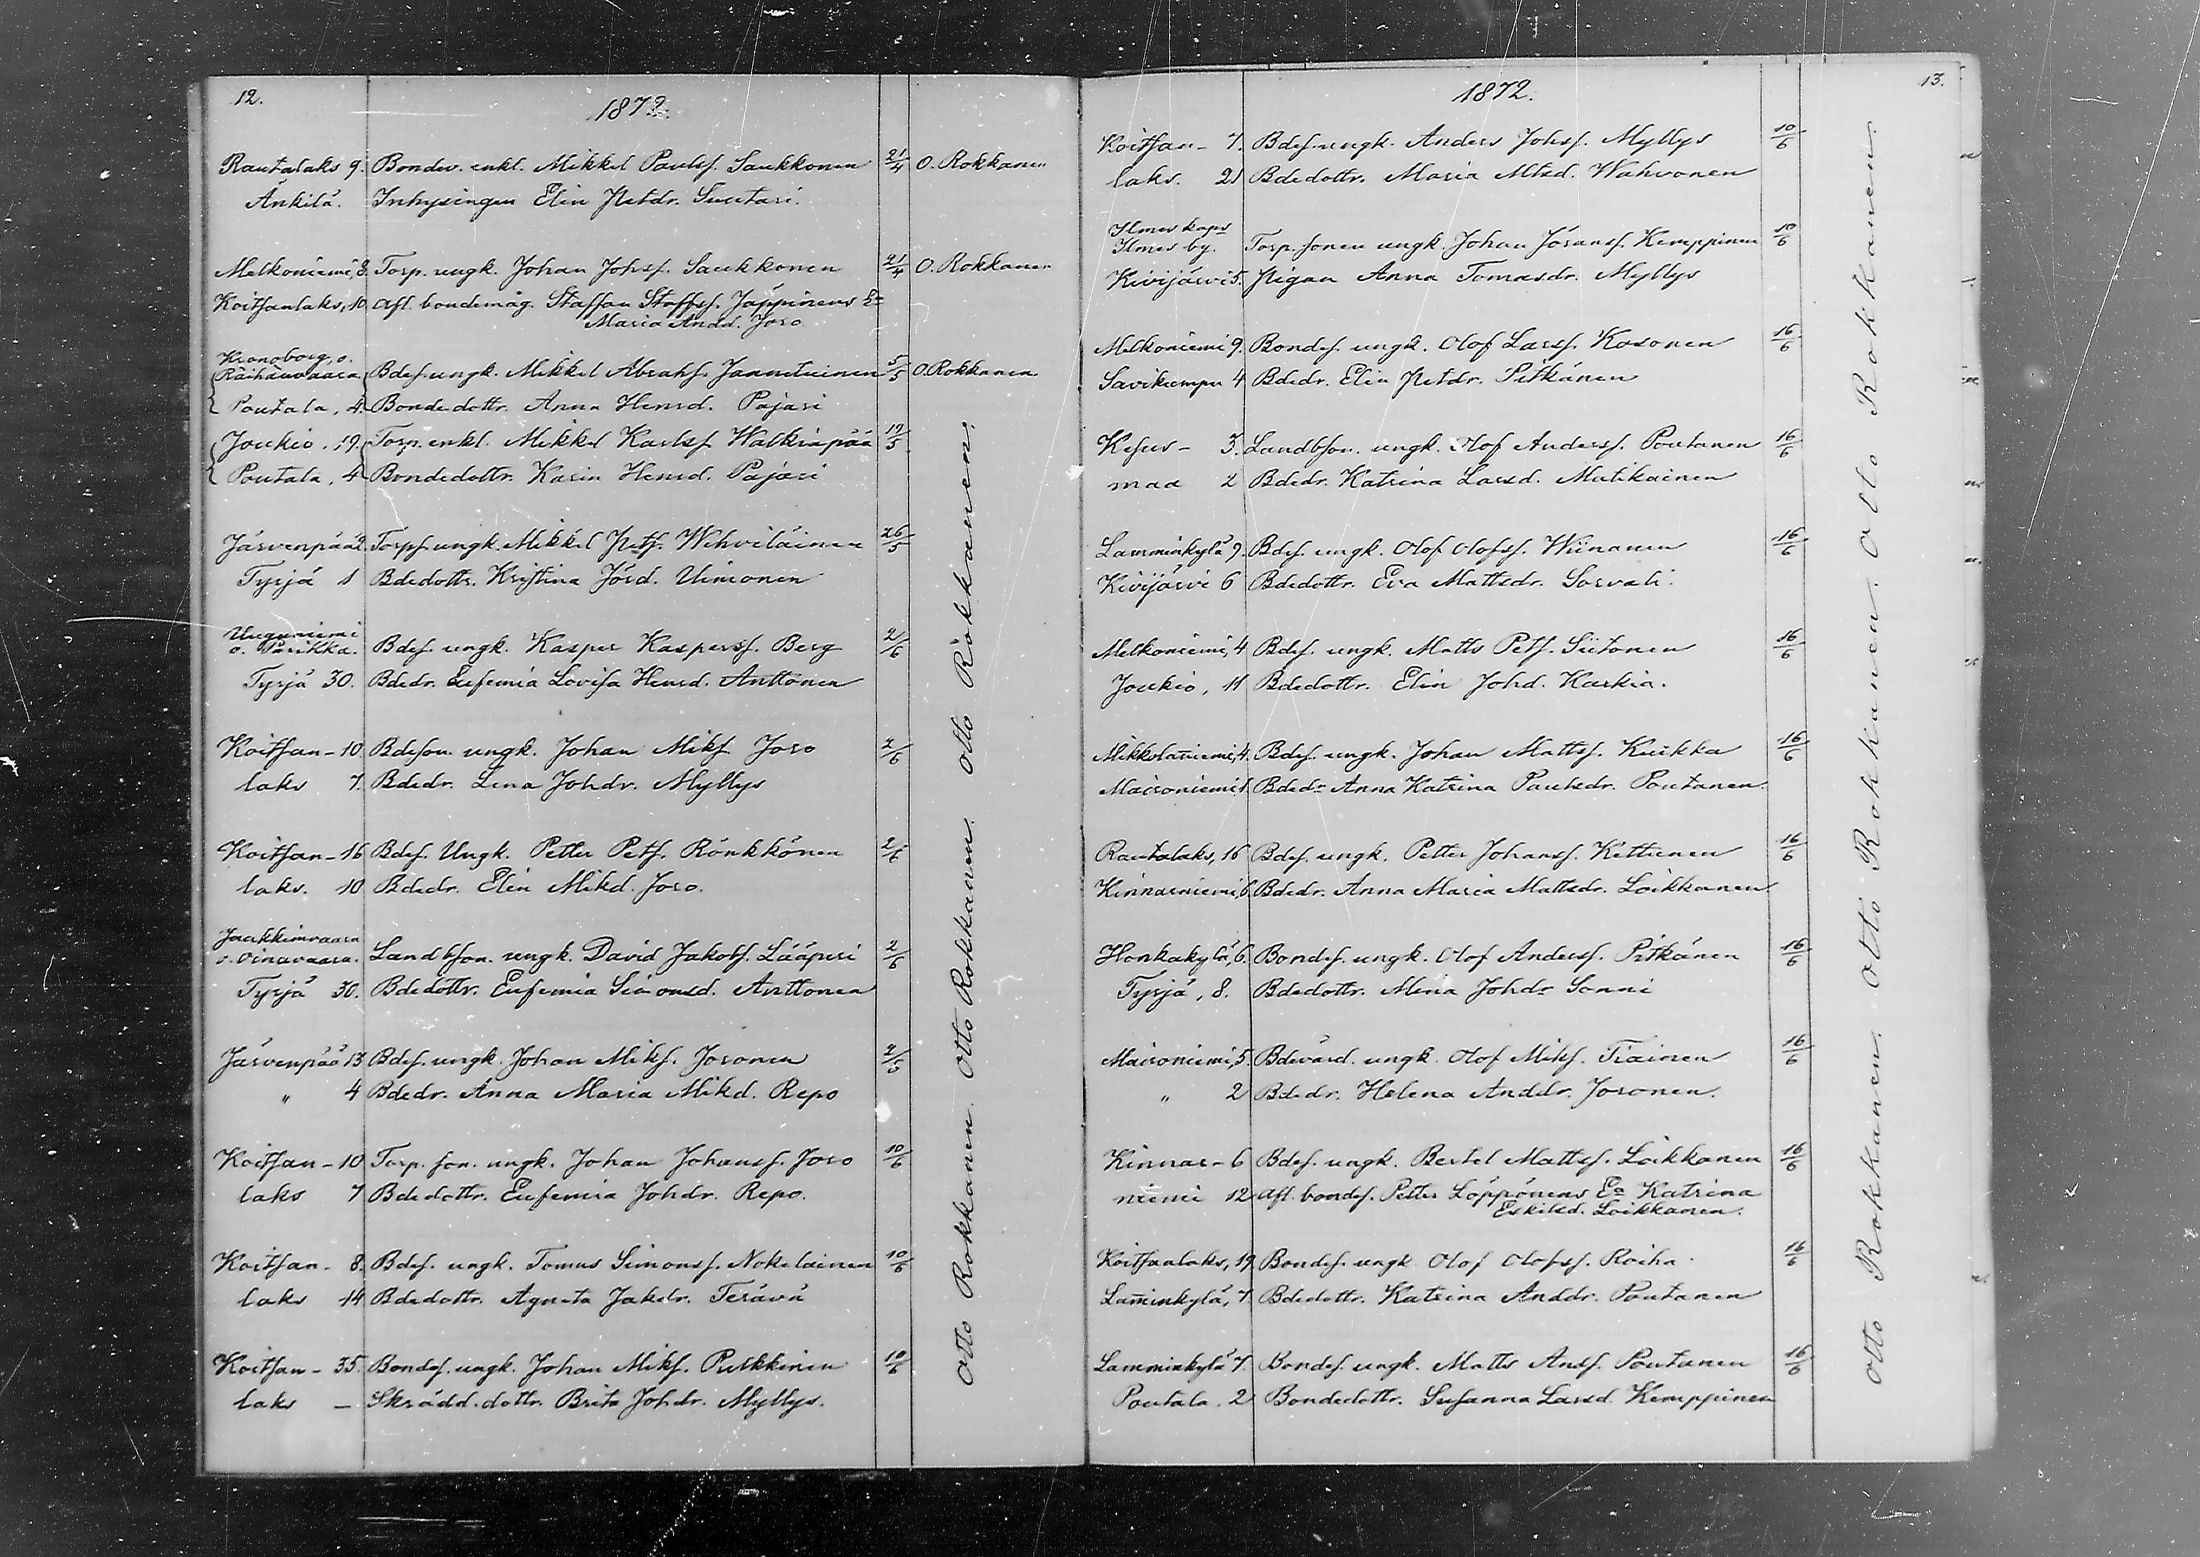 12.
1872.
Rautalaks 9. Bonden. enkl. Mikkel Paulsf. Saukkonen 21/4 O. Rokkanen
Änkilä. Inhysingen Elin Petdr. Suutari.
Melkoniemi, 8. Torp. ungk. Johan Johsf. Saukkonen 21/4 O. Rokkanen
Koitsanlaks, 10. Afl. bondemåg. Staffan Staffsf. Jäppinens Ea
Maria Andd. Joro
Kronoborg, o.
Räihänvaara. Bdesf. ungk. Mikkel Abrahf. Jannetuinen 5/5 O. Rokkanen
Poutala, 4. Bondedottr. Anna Hensd. Pajari
Joukio, 19. Torp. enkl. Mikkel Karlsf. Walkiapää 19/5
Poutala, 4 Bondedottr. Karin Hensd. Pajari
Järvenpää 2. Torpf. ungk. Mikkel Petf. Wihviläinen 26/5
Tyrjä 1 Bdedottr. Kristina Jörd. Uimonen
Uuguniemi
o. Parikka. Bdef. ungk. Kasper Kaspersf. Berg 2/6
Tyrjä 30. Bdedr. Eufemia Lovisa Hensd. Anttonen
Koitsan- 10 Bdeson. ungk. Johan Miksf. Joro 2/6
laks 7. Bdedr. Lena Johdr. Myllys
Koitsan- 16 Bdef. Ungk. Petter Petf. Rönkkönen 2/6
laks. 10 Bdedr. Elin Mikd. Joro.
Jaakkimvaara
o. Oinavaara. Landbson. ungk. David Jakobf. Lääperi 2/6
Tyrjä 30. Bdedottr. Eufemia Simonsd. Anttonen
Järvenpää 13 Bdef. ungk. Johan Miksf. Joronen 2/6
" 4 Bdedr. Anna Maria Mikd. Repo
Koitsan- 10 Torp. son. ungk. Johan Johansf. Joro 10/6
laks 7 Bdedottr. Eufemia Johdr. Repo.
Koitsan- 8. Bdef. ungk. Tomas Simonsf. Nokelainen 10/6
laks 14 Bdedottr. Agneta Jakdr. Terävä
Koitsan- 35. Bondef. ungk. Johan Miksf. Pulkkinen 10/6
laks - Skrädd. dottr. Brita Johdr. Myllys.
Otto Rokkanen. Otto Rokkanen. Otto Rokkanen.
13.
1872.
Koitsan- 7. Bdef. ungk. Anders Johsf. Myllys 10/6
laks. 21 Bdedottr. Maria Mtsd. Wahvonen
Ilmes kaps
Ilmes by. Torp. sonen ungk. Johan Göransf. Kemppinen 10/6
Kivijärvi 5. Pigan Anna Tomasdr. Myllys
Melkoniemi 9. Bondef. ungk. Olof Larsf. Kosonen 16/6
Savikumpu 4 Bdedr. Elin Petdr. Pitkänen
Kesus- 3. Landbson. ungk. Olof Andersf. Poutanen 16/6
maa 2 Bdedr. Katrina Larsd. Matikainen
Lamminkylä 9. Bdef. ungk. Olof Olofsf. Wiinanen 16/6
Kivijärvi 6 Bdedottr. Eva Mattsdr. Sorvali.
Melkoniemi, 4 Bdef. ungk. Matts Petf. Siitonen 16/6
Joukio, 11 Bdedottr. Elin Johd. Karkia.
Mikkolaniemi, 4. Bdef. ungk. Johan Mattsf. Kuikka 16/6
Maironiemi, 1. Bdedr Anna Katrina Paulsdr. Poutanen.
Rautalaks, 16 Bdef. ungk. Petter Johansf. Kettunen 16/6
Kinnarniemi, 6. Bdedr. Anna Maria Mattsdr. Loikkanen
Honkakylä, 6. Bondef. ungk. Olof Andersf. Pitkänen 16/6
Tyrjä, 8. Bdedottr. Mina Johdr Sonni
Maironiemi, 5. Bdevärd. ungk. Olof Miksf. Tiainen 16/6
" 2 Bdedr. Helena Anddr. Joronen.
Kinnar- 6 Bdef. ungk. Bertel Mattsf. Loikkanen 16/6
niemi 12 Afl. bondef. Petter Löppönens Ea Katrina
Eskilsd. Loikkanen.
Koitsanlaks, 19 Bondef. ungk. Olof Olofsf. Roiha. 16/6
Laminkylä, 7. Bdedottr. Katrina Anddr. Poutanen
Lamminkylä 7. Bondef. ungk. Matts Ansf. Poutanen 16/6
Poutala. 2 Bondedottr. Susanna Larsd. Kemppinen
Otto Rokkanen. Otto Rokkanen. Otto Rokkanen.